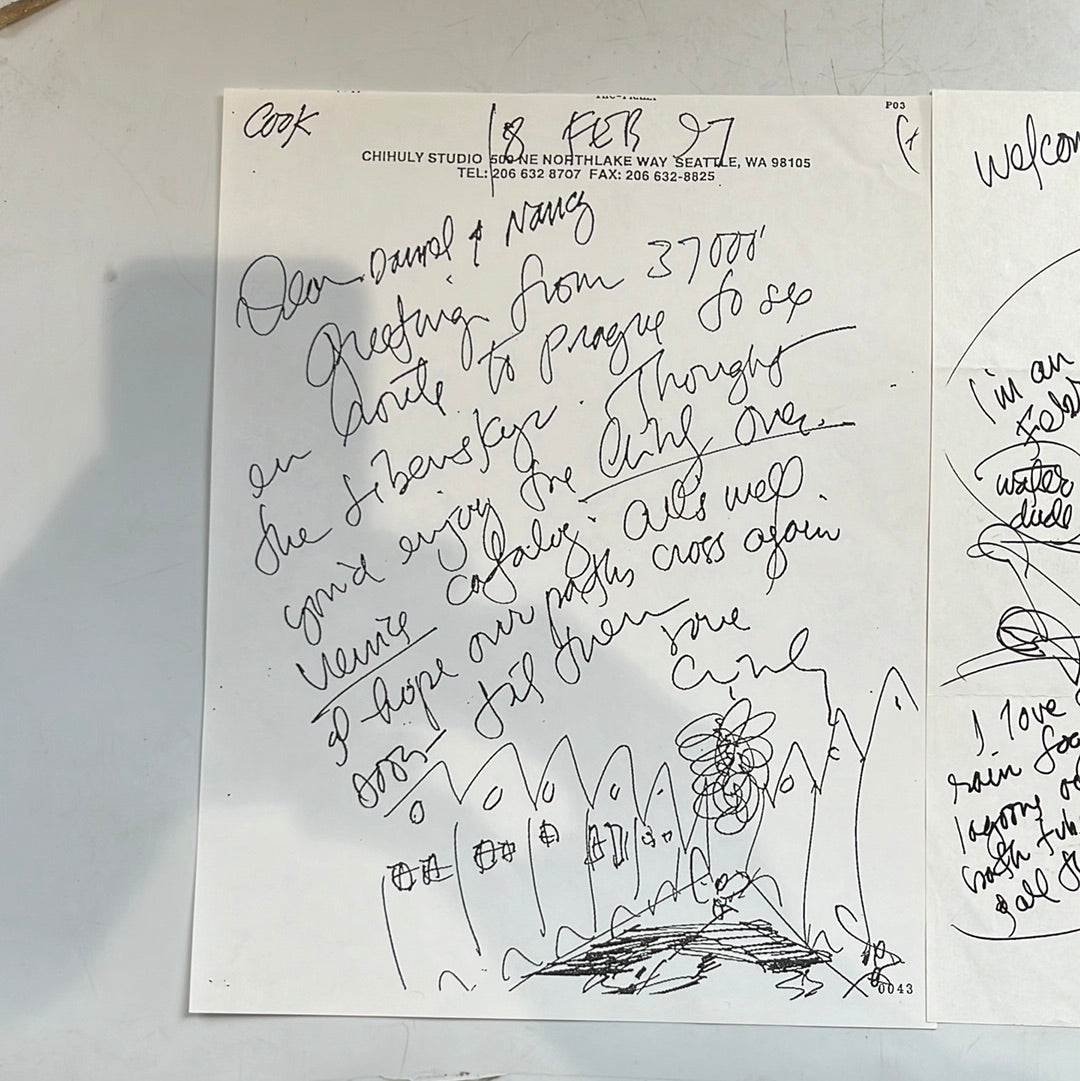 P03
Cook
18 FEB 97
CHIHULY STUDIO 509 NE NORTHLAKE WAY SEATTLE, WA 98105
TEL: 206 632 8707 FAX: 206 632-8825
Dear Daniel & Nancy
Greetings from 37000'
en route to Prague to see
the Libenskys. Thought
you'd enjoy the Chihuly Over
Venice catalog. All's well.
I hope our paths cross again
soon – til then
Love
Chihuly
0043
Welcom
I'm an
water
dude
I love
rain
lagoons
bath tub
& all